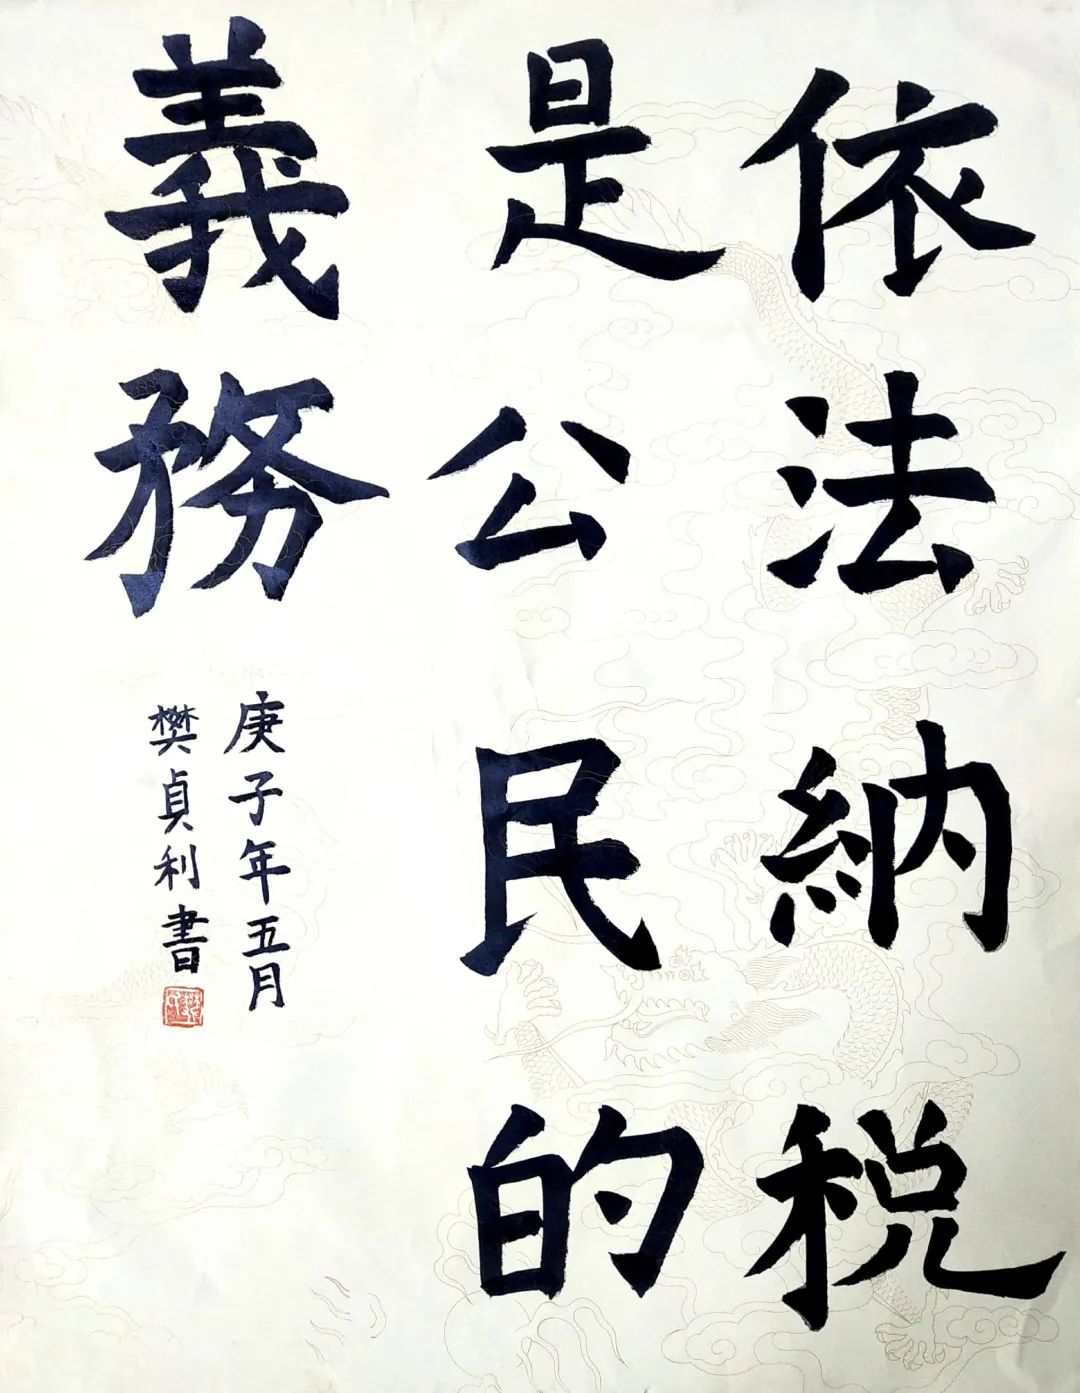 依法納税
是公民的
義務
庚子年五月
樊貞利書